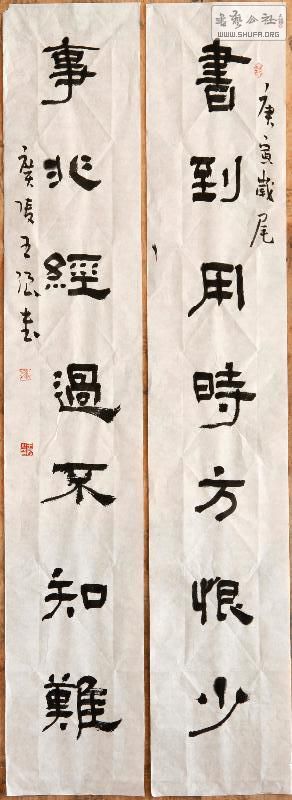 書到用時方恨少
庚寅歲尾
事非經過不知難
廣陵王強書
書藝公社
WWW.SHUFA.ORG